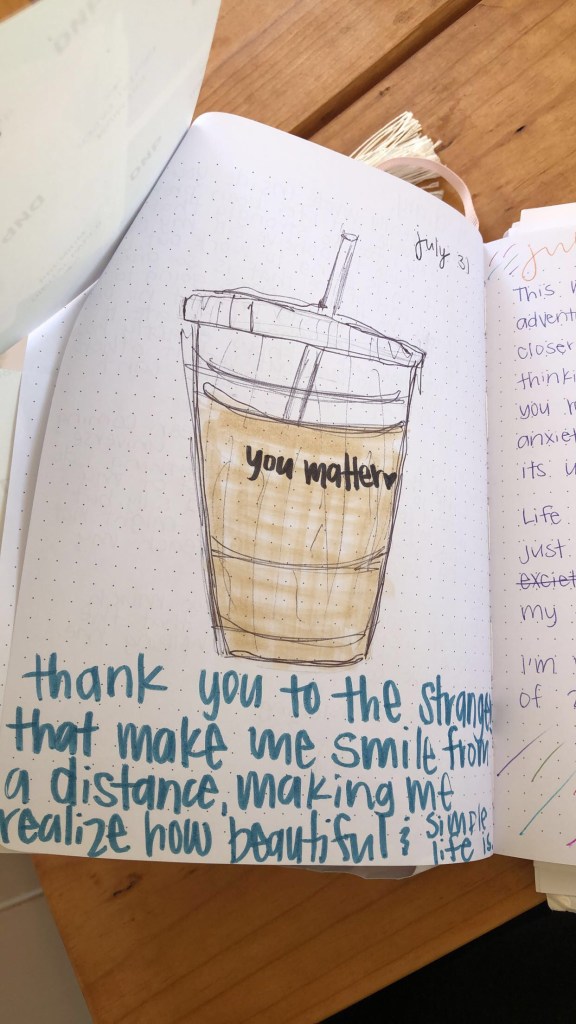 july 31
you matter♥
thank you to the strangers
that make me smile from
a distance, making me
realize how beautiful & simple
life is.
This
closer
you
its
Life
just
my
I'm
of